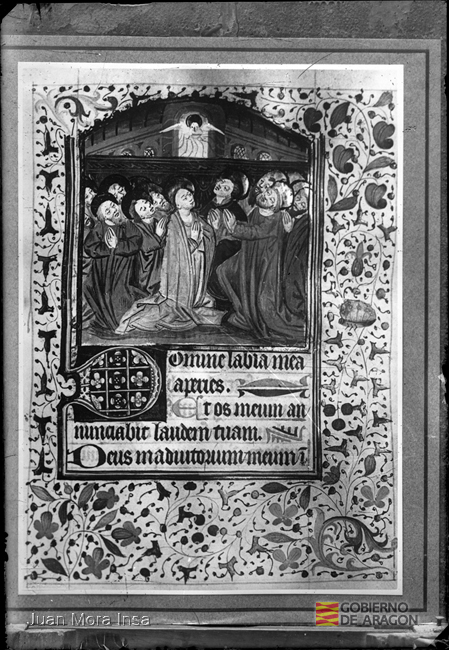 Domine labia mea
aperies.
Et os meum an
nunciabit laudem tuam.
Deus in adiutorium meum i
Juan Mora Insa
GOBIERNO
DE ARAGON